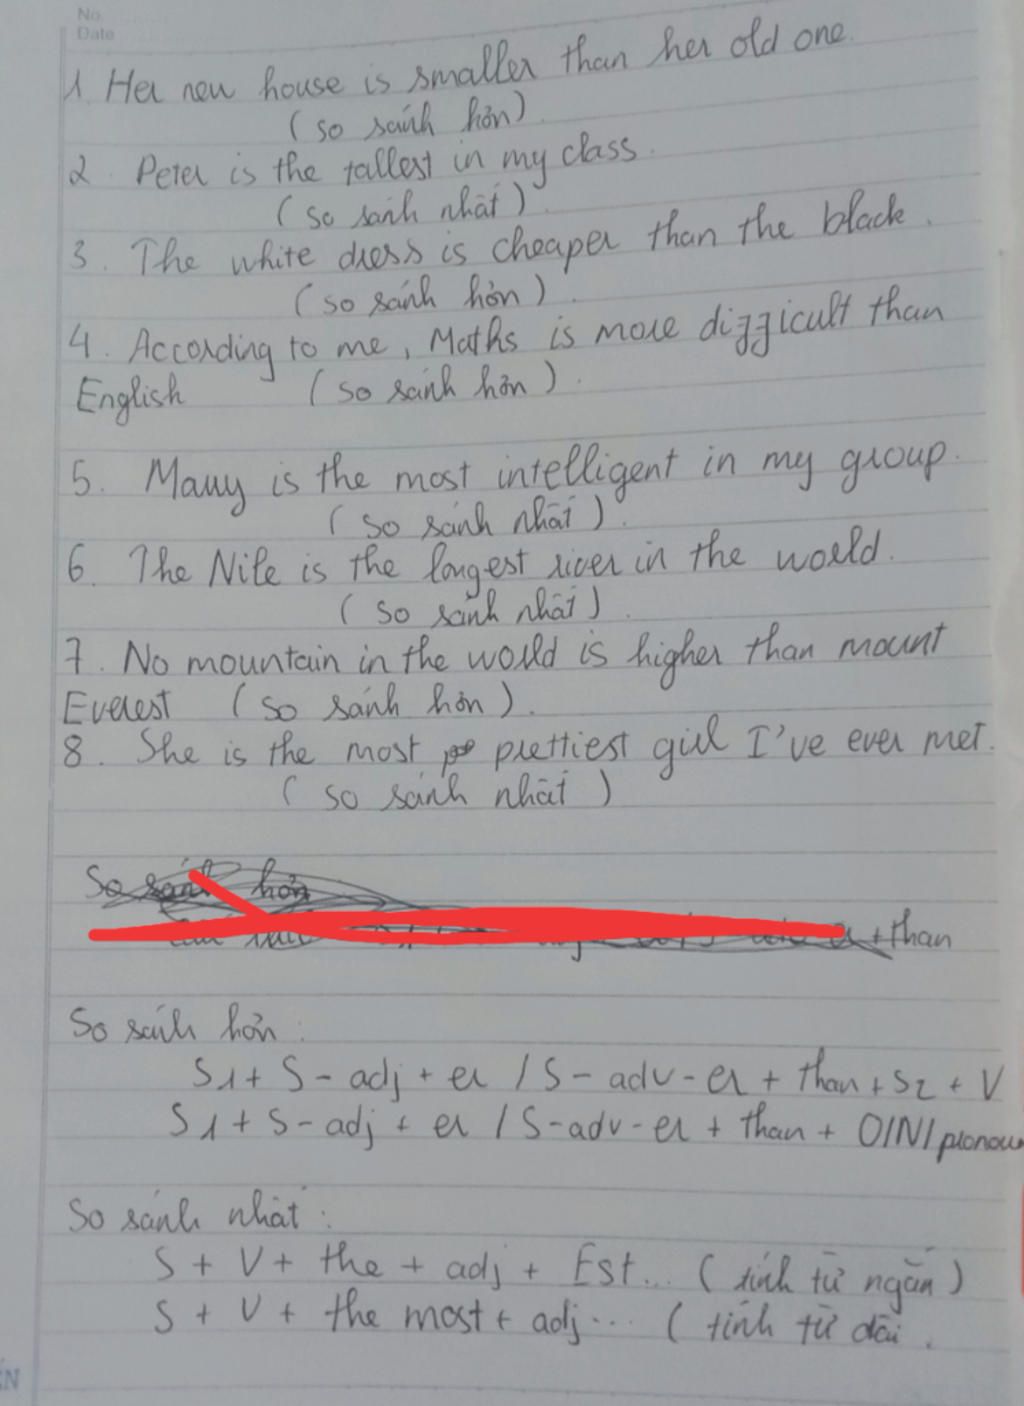 No.
Date
1. Her new house is smaller than her old one.
(so sánh hơn).
2. Peter is the tallest in my class.
(so sánh nhất).
3. The white dress is cheaper than the black.
(so sánh hơn).
4. According to me, Maths is more difficult than
English (so sánh hơn).
5. Mary is the most intelligent in my group.
(so sánh nhất).
6. The Nile is the longest river in the world.
(so sánh nhất).
7. No mountain in the world is higher than mount
Everest (so sánh hơn).
8. She is the most prettiest girl I've ever met.
(so sánh nhất)
So sánh hơn
+ than
So sánh hơn:
S1 + S - adj + er / S - adv - er + than + S2 + V
S1 + S - adj + er / S - adv - er + than + O/N/
So sánh nhất:
S + V + the + adj + Est... (tính từ ngắn)
S + V + the most + adj... (tính từ dài.